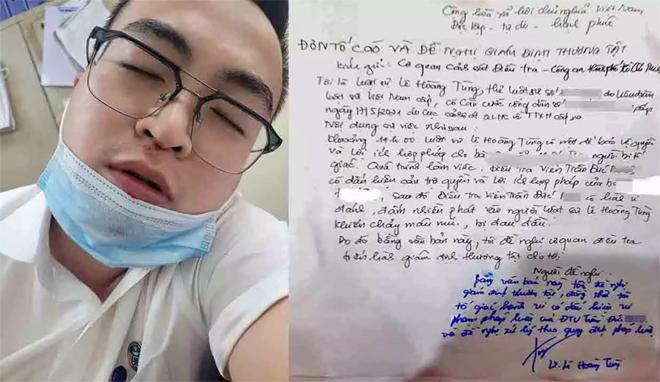 Cộng hòa xã hội chủ nghĩa Việt Nam
Độc lập - tự do - hạnh phúc
ĐƠN TỐ CÁO VÀ ĐỀ NGHỊ GIÁM ĐỊNH THƯƠNG TẬT
Kính gửi: Cơ quan cảnh sát Điều tra - Công an
Tôi là luật sư Lê Hoàng Tùng, thẻ luật sư số do Liên đoàn
luật sư Việt Nam cấp, có căn cước công dân số cấp
ngày 17/5/2021 do cục cảnh sát QLHC về TTXH cấp
Nội dung sự việc như sau:
khoảng 11h00 luật sư Lê Hoàng Tùng có mặt để bảo vệ quyền
và lợi ích hợp pháp cho bà người bị tố
giác. Quá trình làm việc, Điều tra Viên Trần Đức
có dấu hiệu cản trở quyền và lợi ích hợp pháp của bà
Sau đó Điều Tra Viên Trần Đức có hành vi
đánh, đấm nhiều phát vào người luật sư Lê Hoàng Tùng
khiến chảy máu mũi, bị đau đầu.
Do đó bằng văn bản này, tôi đề nghị cơ quan điều tra
tiến hành giám định thương tật cho tôi.
Người đề nghị
Bằng văn bản này tôi đề nghị
giám định thương tật, đồng thời tôi
tố giác hành vi có dấu hiệu vi
phạm pháp luật của ĐTV Trần Đức
và đề nghị xử lý theo quy định pháp luật
Ls. Lê Hoàng Tùng